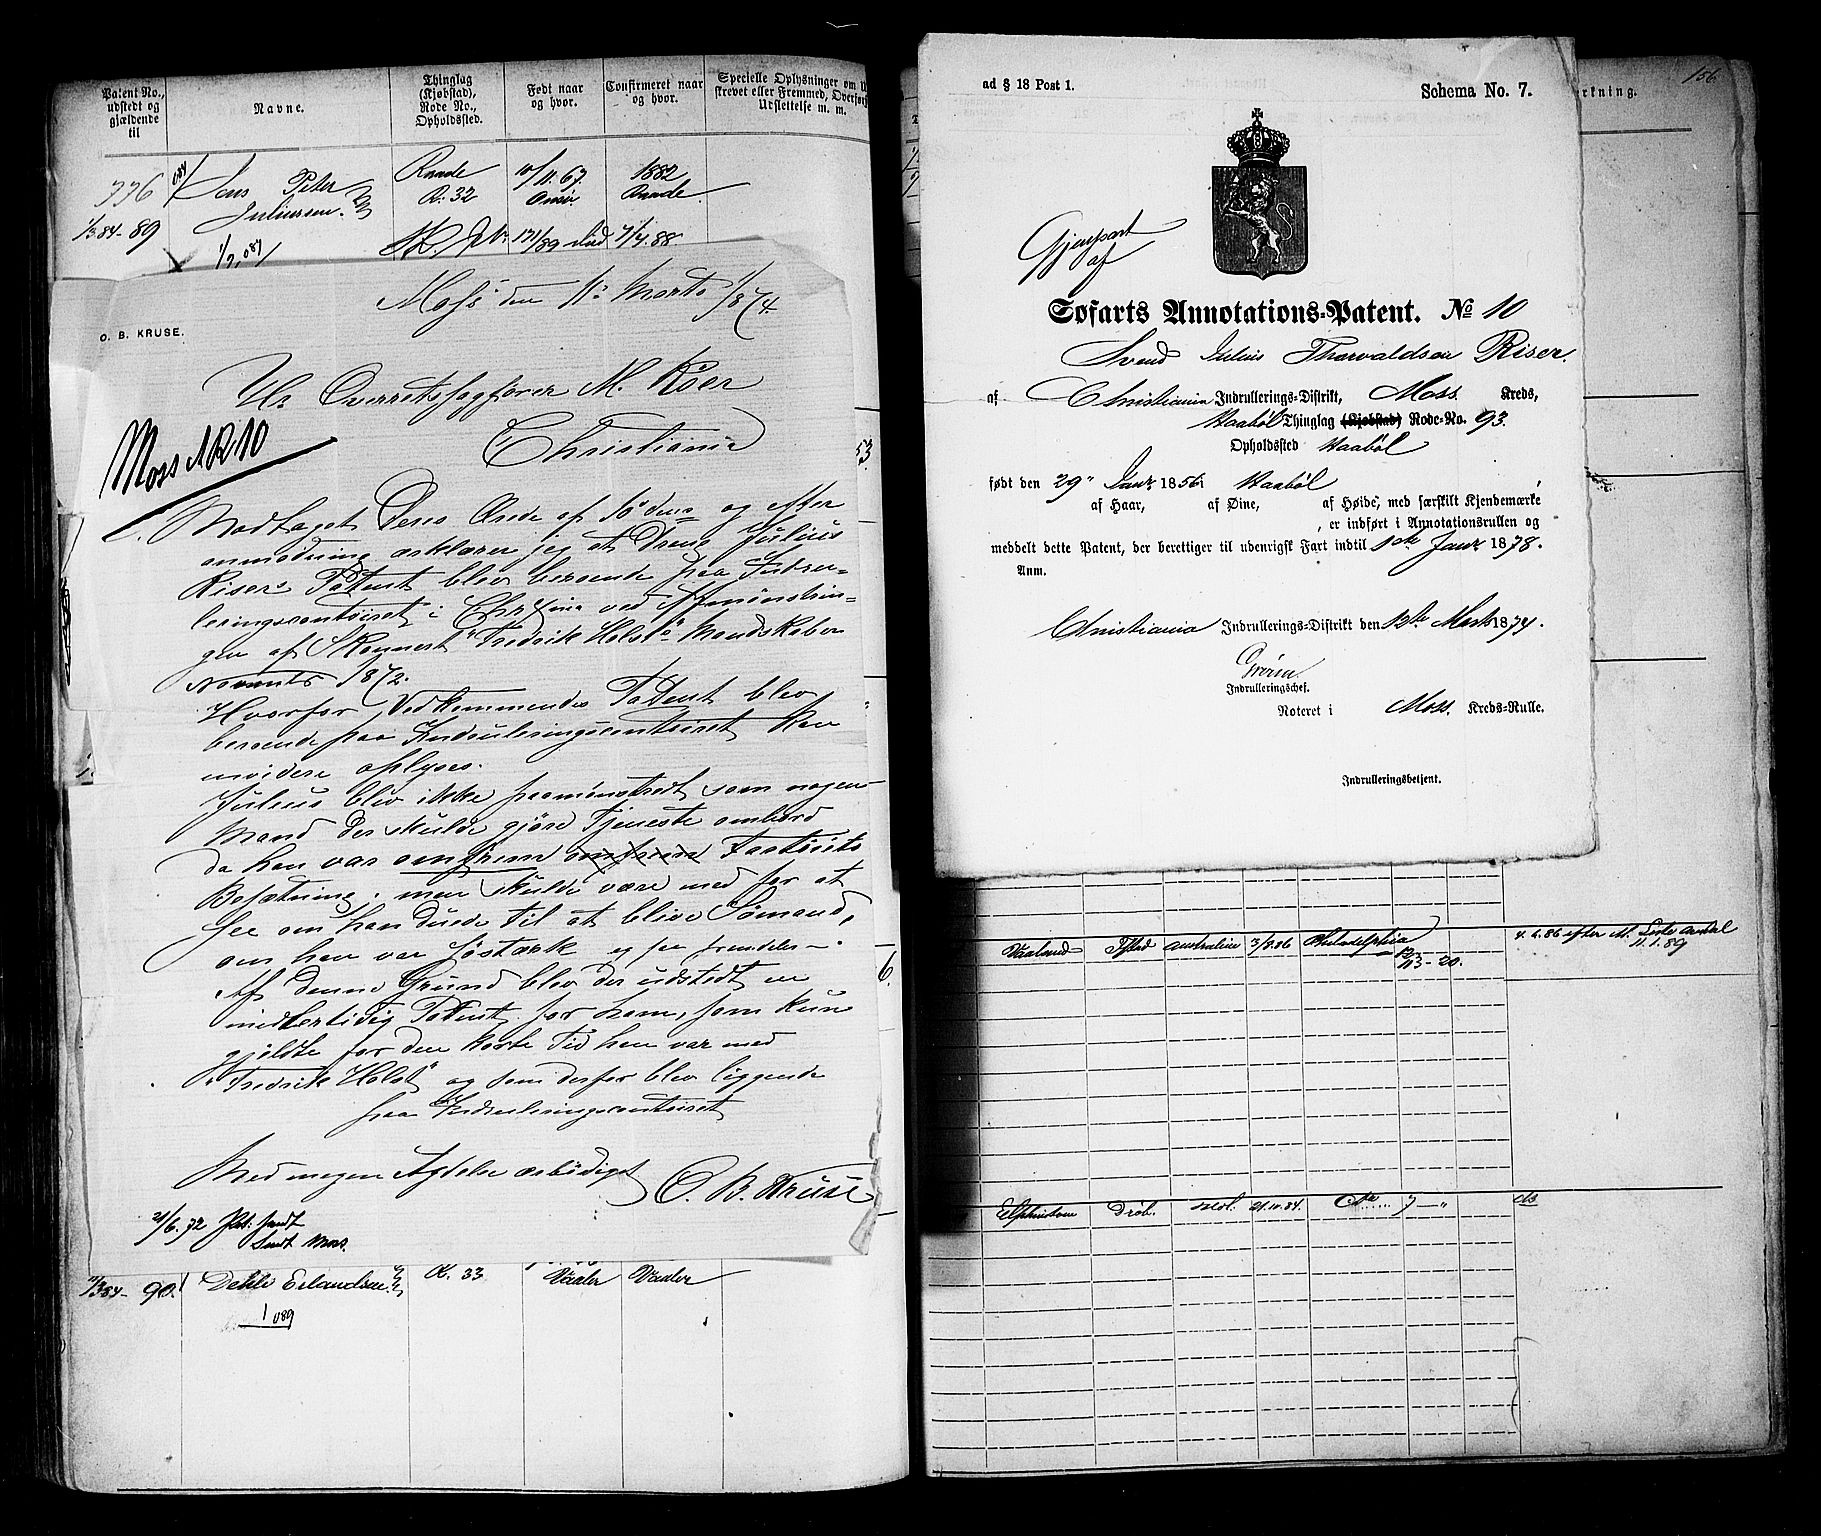 Patent No.,
udstedt og
gjældende
til
Navne.
Thinglag
(Kjøbstad),
Rode No.,
Opholdssted.
Født naar
og hvor.
Confirmeret naar
og hvor.
Specielle Oplysninger om U
skrevet eller Fremmed, Overførs
Udslettelse m. m.
776
1/3 84 - 89
Jens Peter
Juliussen
Raade
R. 32
10/11. 67
Onsø
1882
Raade
171/89 7/4. 88
O. B. KRUSE.
Moss den 11' Marts 1874.
Hr Overretssagfører M. Roer
Christiania
Moss A R 10
Modtaget Deres Ærede af 10' dens og efter
anmodning erklærer jeg at Dreng Julius
Risers Patent blev beroende paa Indrul-
leringscontoiret i Chr.ania ved Afmønstrin-
gen af Skonnert "Fredrik Holst" Mandskaber
Novembr 1872.
Hvorfor Vedkommendes Patent blev
beroende paa Indrulleringscontoiret kan
ei videre oplyses.
Julius blev ikke paamønstredt som nogen
Mand der skulde gjøre Tjeneste ombord
da han var omfrem omfrem Fartøiets
Besætning, men skulde være med for at
see om han duede til at blive Sømand,
om han var søstærk og saa fremdeles -
Af denne Grund blev der udstedt en
midlertidig Patent for ham, som kun
gjeldte for den korte Tid han var med
"Fredrik Holst" og som derfor blev liggende
paa Indrulleringscontoiret
Med megen Agtelse ærbødigst
O. B. Kruse
21/6. 72 Pat. sendt
Sendt Moss.
11/3 84 - 90.
Dehli Erlandsen
1 089
R. 33
Vaaler
Vaaler
53
6.
ad § 18 Post 1.
Schema No. 7.
Gjenpart
af
Søfarts Annotations-Patent. No 10
Svend Julius Thorvaldsen Riser.
af Christiania Indrullerings-Distrikt, Moss Kreds,
Vaabøl Thinglag (Kjøbstad) Rode-No. 93.
Opholdssted Vaabøl
født den 29" Janr 1856 i Vaabøl
af Haar, af Øine, af Høide, med særskilt Kjendemærke
, er indført i Annotationsrullen og
meddelt dette Patent, der berettiger til udenrigsk Fart indtil 1ste Janr 1878.
Anm.
Christiania Indrullerings-Distrikt den 12te Marts 1874.
Grøm
Indrulleringschef.
Noteret i Moss. Kreds-Rulle.
Indrulleringsbetjent.
156
erkning.
Vaaland Fstad Australien 3/8.86 Philadelphia 12/113 - 20.
4. 6. 86 efter M. Liste anstal
11. 1. 89
Elphinstone Drøb. Mdl. 21.11.84. 7 - "